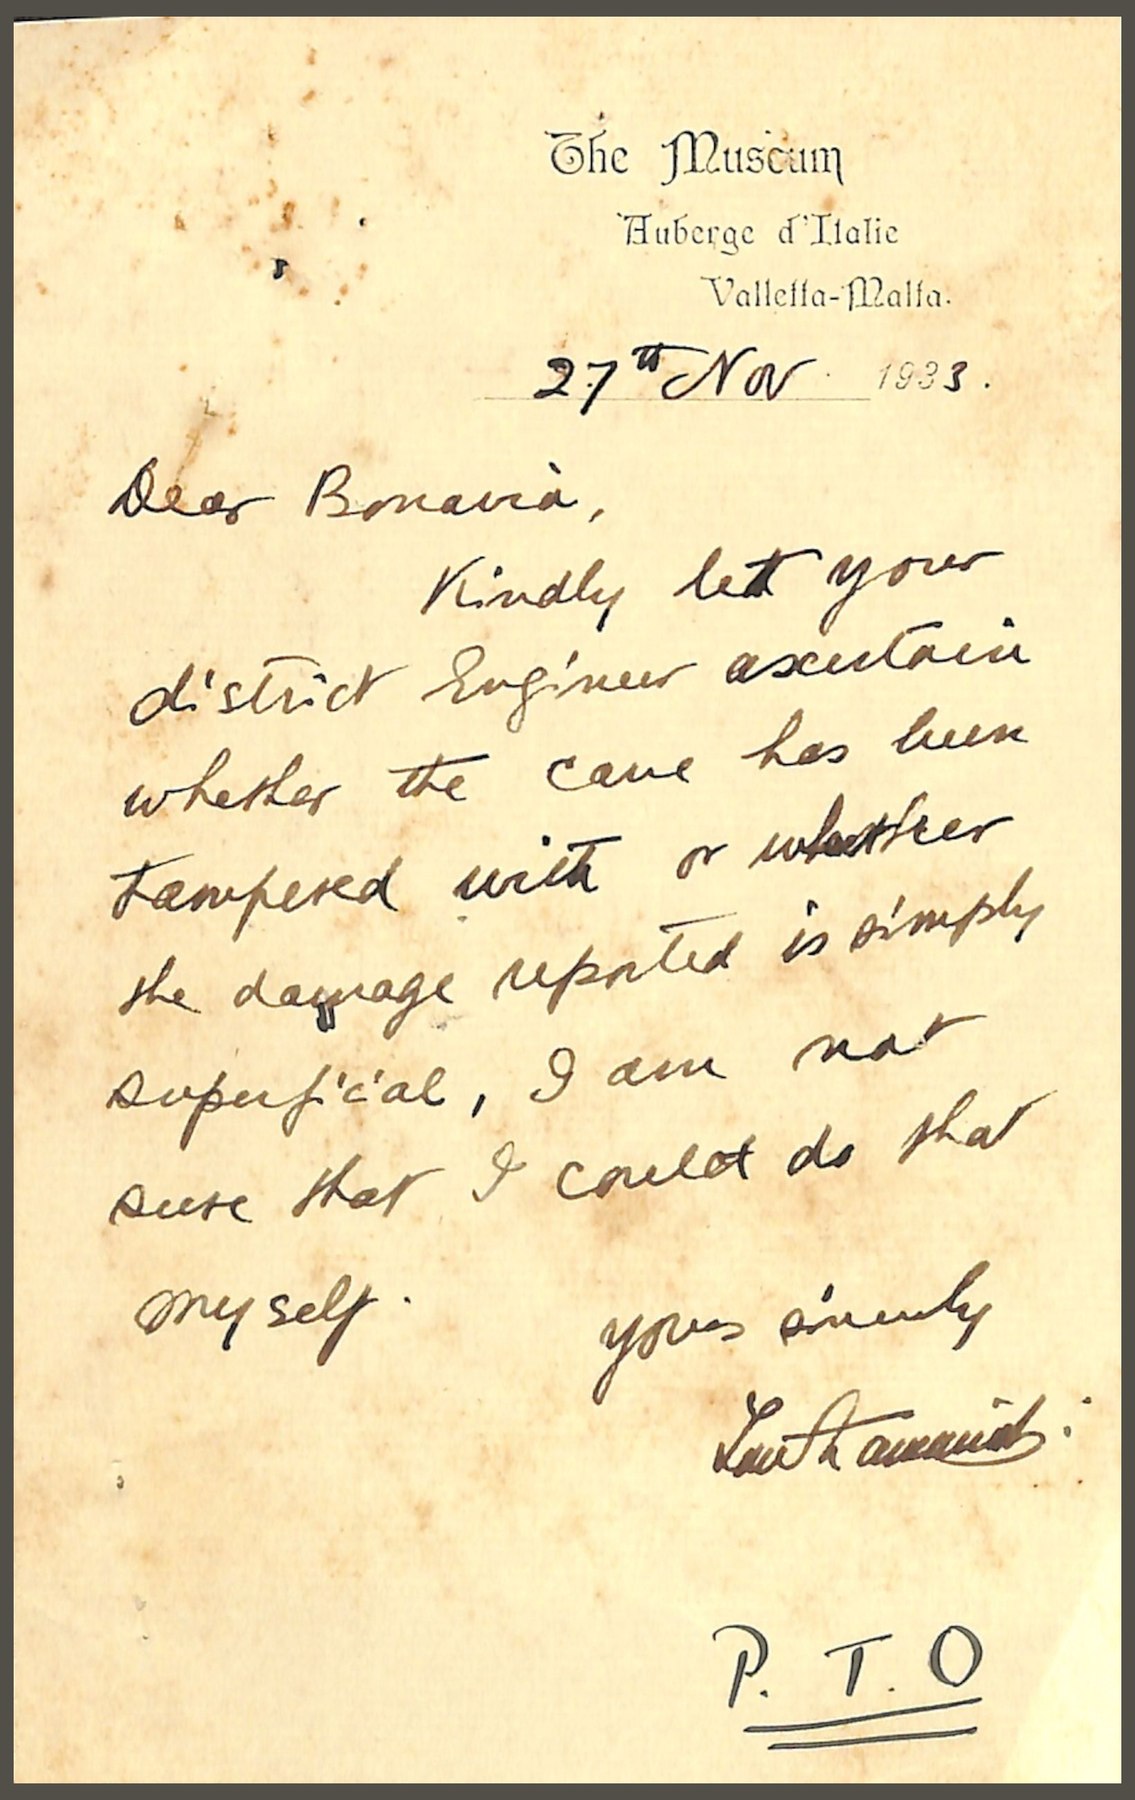 The Museum
Auberge d'Italie
Valletta-Malta.
27th Nov. 1933.
Dear Bonavia,
Kindly let your
district Engineer ascertain
whether the cave has been
tampered with or whether
the damage reported is simply
superficial, I am not
sure that I could do that
myself.
yours sincerely
P. T. O